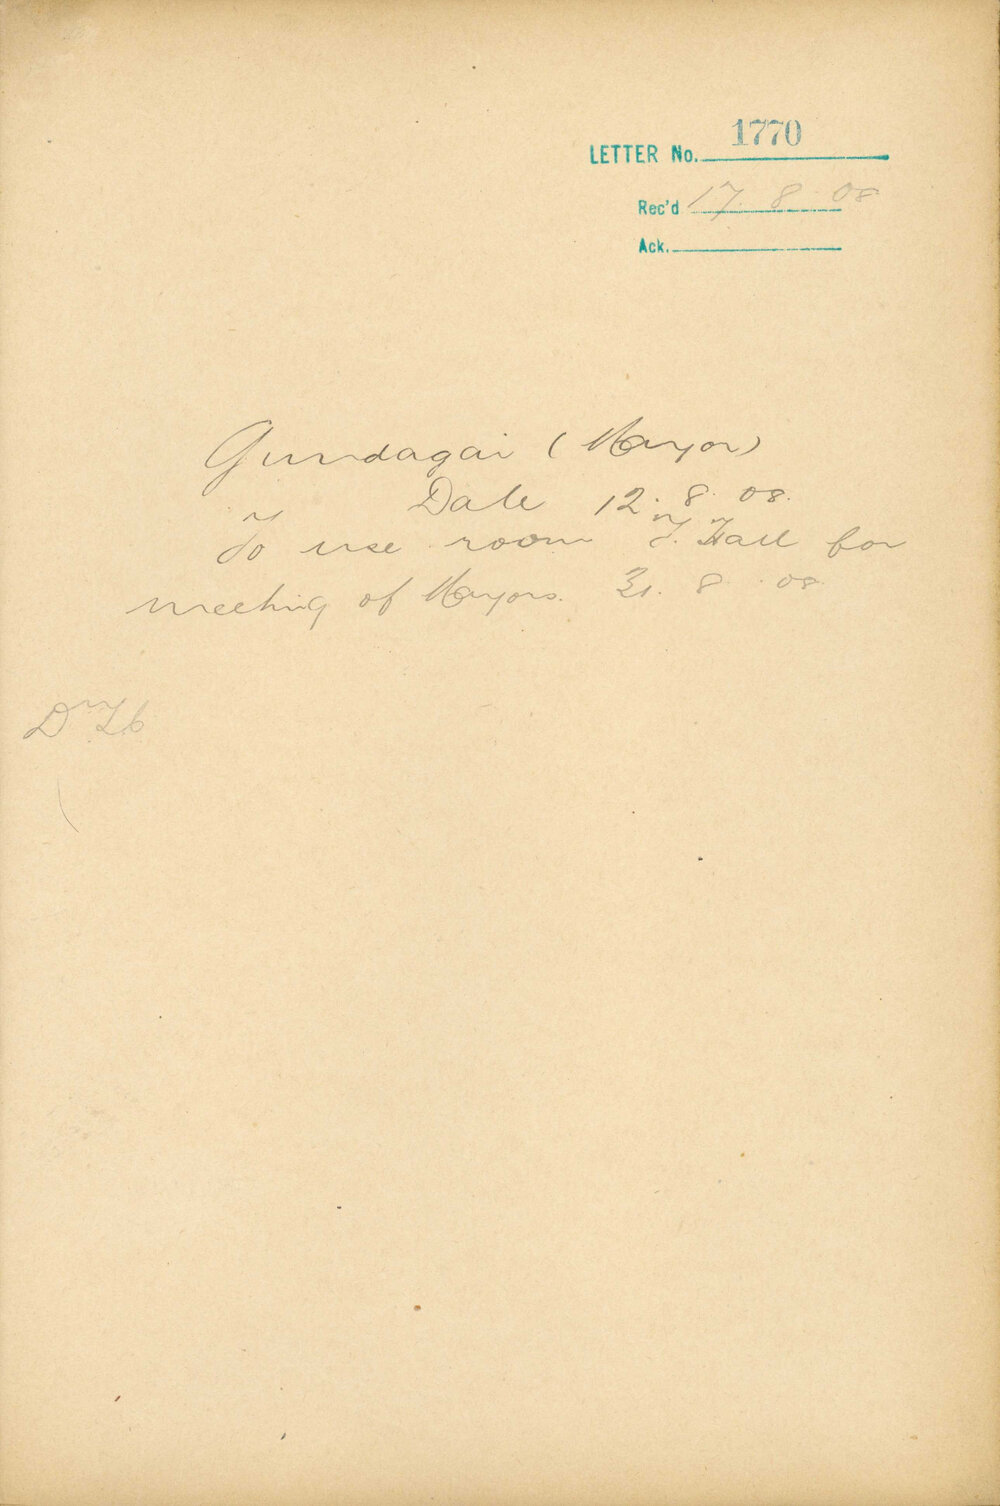 LETTER No. 1770
Rec'd 17. 8. 08
Ack.
Gundagai (Mayor)
Date 12. 8. 08.
To use room T. Hall for
meeting of Mayors. 31. 8. 08